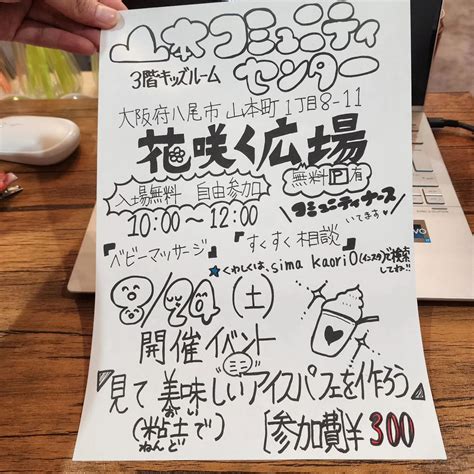 山本コミュニティ
センター
3階キッズルーム
大阪府八尾市 山本町1丁目8-11
花咲く広場
入場無料 自由参加
無料P有
10:00～12:00
コミュニティナース
いてます
『ベビーマッサージ』『すくすく相談』
★くわしくは、sima kaori0(インスタ)で検索
してね!!
8/24(土)
開催イベント
ミニ
見て美味しいアイスパフェを作ろう
(粘土で)
ねんど
おい
[参加費]¥300